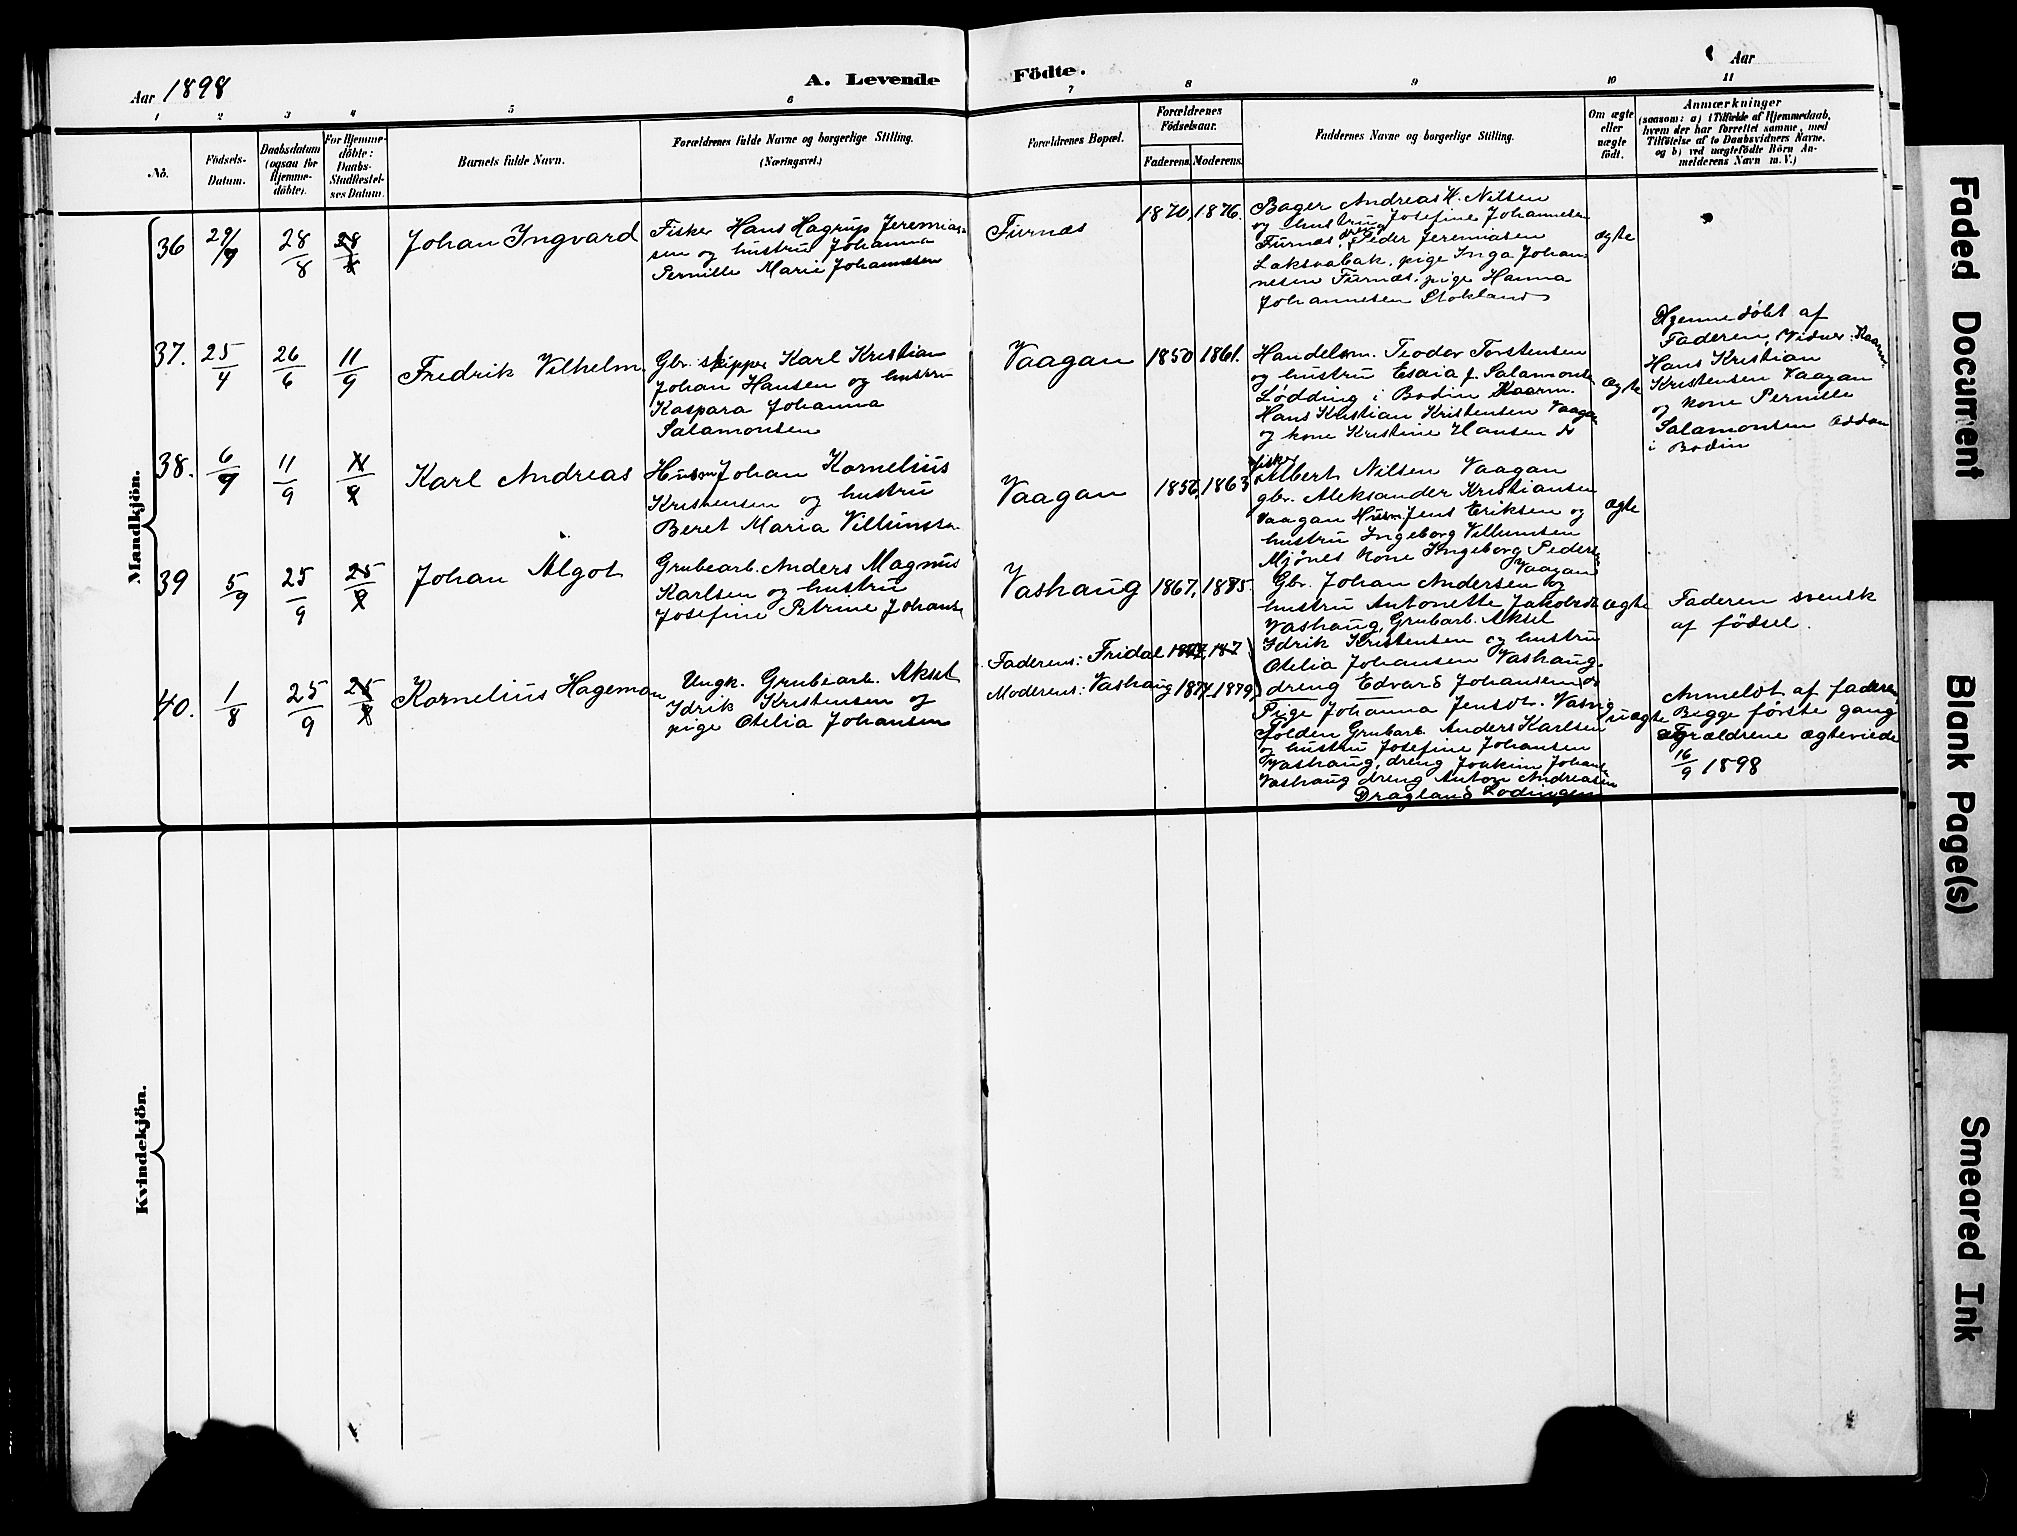 Aar 1898
A. Levende Födte.
Aar
1 2 3 4 5 6 7 8 9 10 11
No.
Födsels-
Datum.
Daabsdatum
(ogsaa for
Hjemme-
döbte).
For Hjemme-
döbte:
Daabs-
Stadfæstel-
ses Datum.
Barnets fulde Navn.
Forældrenes fulde Navne og borgerlige Stilling.
(Næringsvei.)
Forældrenes Bopæl.
Forældrenes
Födselsaar.
Faderens. Moderens.
Faddernes Navne og borgerlige Stilling.
Om ægte
eller
uægte
födt.
Anmærkninger
(saasom: a) i Tilfælde af Hjemmedaab,
hvem der har forrettet samme, med
Tilföielse af to Daabsvidners Navne.
og b) ved uægtefödte Börn An-
melderens Navn m. V.)
Mandkjön.
36
28/8
28/8
Johan Ingvard
Fisker Hans Hagrup Jeremias-
sen og hustru Johanna
Pernille Marie Johannesen
Furnæs
1870, 1876.
Bager Andreas H. Nilsen
og hustru Josefine Johannesen
Furnæs, dreng Peder Jeremiasen
Laksaabak, pige Inga Johan-
nesen Furnæs, pige Hanna
Johannesen Stokland
ægte
37.
25/4
26/6
11/9
Fredrik Vilhelm
Gbr. skipper Karl Kristian
Johan Hansen og hustru
Kaspara Johanna
Salamonsen
Vaagan
1850 1861.
Handelsm. Teodor Torstensen
og hustru Esaia f. Salamonsen
Lødding i Bodin
Hans Kristian Kristensen Vaagan
og kone Kristine Hansen ds
ægte
Hjemmedøbt af
Faderen, Vidner:
Hans Kristian
Kristensen Vaagan
og kone Pernille
Salamonsen Oddan
i Bodin
38.
6/9
11/9
11/9
Karl Andreas
Husm Johan Kornelius
Kristensen og hustru
Beret Maria Villumsen
Vaagan
1856, 1863
fisker
Albert Nilsen Vaagan
gbr. Aleksander Kristiansen
Vaagan Husm. Jens Eriksen og
hustru Ingeborg Villumsen
Mjönes kone Ingeborg Pedersen
Vaagan
ægte
39
5/9
25/9
25/9
Johan Algot
Grubearb. Anders Magnus
Karlsen og hustru
Josefine Petrine Johans.
Vashaug
1867, 1885.
Gbr. Johan Andersen og
hustru Antonette Jakobsdt
Vashaug, Grubarb. Aksel
Idrik Kristensen og hustru
Otelia Johansen Vashaug.
dreng Edvard Johansen ds
ægte
Faderen svensk
af födsel.
40.
1/8
25/9
25/9
Kornelius Hageman
Ungk. Grubearb. Aksel
Idrik Kristensen og
pige Otelia Johansen
Faderens: Fridal
Moderens: Vashaug 1877, 1879
Pige Johanna Jensdt. Vasvig
Folden Grubarb. Anders Karlsen
og hustru Josefine Johansen
Vashaug, dreng Joakim Johans.
Vashaug dreng Anton Andreasen
Dragland Lødingen
uægte
Anmeldt af faderen,
Begge første gang
Forældrene ægteviede
16/9 1898
Kvindekjön.
Faded Document
Blank Page(s)
Smeared Ink